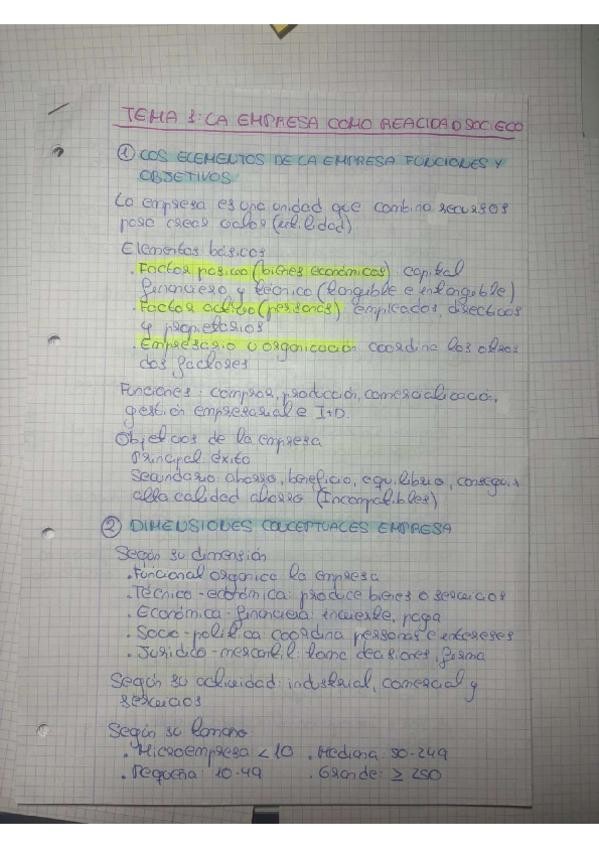 TEMA 1: LA EMPRESA COMO REALIDAD SOCIECO
① LOS ELEMENTOS DE LA EMPRESA FUNCIONES Y
OBJETIVOS
La empresa es una unidad que combina recursos
para crear valor (utilidad)
Elementos básicos
. Factor pasivo (bienes económicos) capital
financiero y técnico (tangible e intangible)
. Factor activo (personas) empleados, directivos
y propietarios
. Empresario u organización coordina los otros
dos factores
Funciones: comprar, producción, comercialización,
gestión empresarial e I+D.
Objetivos de la empresa
Principal éxito
Secundario ahorro, beneficio, equilibrio, conseguir
alta calidad ahorro (Incompatibles)
② DIMENSIONES CONCEPTUALES EMPRESA
Según su dimensión
. Funcional organica la empresa
. Técnico-económica: produce bienes o servicios
. Económica-financiera: invierte, paga
. Socio-política coordina personas e intereses
. Jurídico-mercantil: toma decisiones, firma
Según su actividad: industrial, comercial y
servicios
Según su tamaño
. Microempresa < 10 . Mediana: 50-249
. Pequeña: 10-49 . Grande: ≥ 250